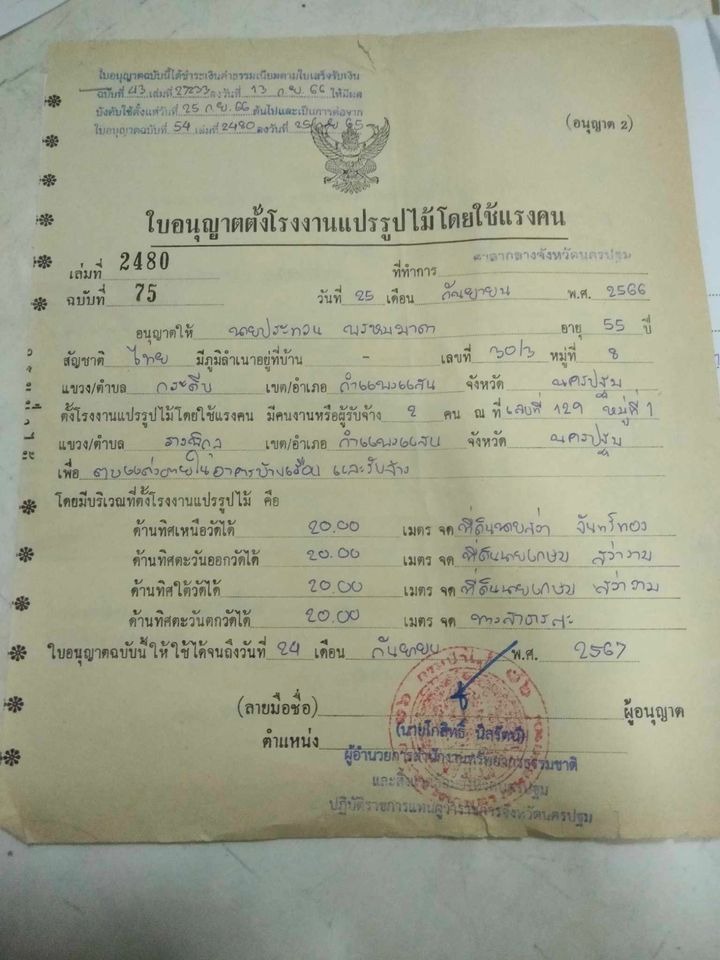 ใบอนุญาตฉบับนี้ได้ชำระเงินค่าธรรมเนียมตามใบเสร็จรับเงิน
ฉบับที่ 43 เล่มที่ ลงวันที่ 13 ก.ย. 66 ให้มีผล
บังคับใช้ตั้งแต่วันที่ 25 ก.ย. 66 ต้นไปและเป็นการต่อจาก
ใบอนุญาตฉบับที่ 54 เล่มที่ 2480 ลงวันที่ 65
(อนุญาต 2)
ใบอนุญาตตั้งโรงงานแปรรูปไม้โดยใช้แรงคน
เล่มที่ 2480 ที่ทำการ ศาลากลางจังหวัดนครปฐม
ฉบับที่ 75 วันที่ 25 เดือน กันยายน พ.ศ. 2566
อนุญาตให้ นายประทวน พรหมมาดา อายุ 55 ปี
สัญชาติ ไทย มีภูมิลำเนาอยู่ที่บ้าน - เลขที่ 30/3 หมู่ที่ 8
แขวง/ตำบล กระตีบ เขต/อำเภอ กำแพงแสน จังหวัด นครปฐม
ตั้งโรงงานแปรรูปไม้โดยใช้แรงคน มีคนงานหรือผู้รับจ้าง 2 คน ณ ที่ เลขที่ 129 หมู่ที่ 1
แขวง/ตำบล รางพิกุล เขต/อำเภอ กำแพงแสน จังหวัด นครปฐม
เพื่อ ตบแต่งภายในอาคารบ้านเรือน และรับจ้าง
โดยมีบริเวณที่ตั้งโรงงานแปรรูปไม้ คือ
ด้านทิศเหนือวัดได้ 20.00 เมตร จด ที่ดินนายสว่า จันทร์ทอง
ด้านทิศตะวันออกวัดได้ 20.00 เมตร จด ที่ดินนายเกษม สว่างาม
ด้านทิศใต้วัดได้ 20.00 เมตร จด ที่ดินนายเกษม สว่างาม
ด้านทิศตะวันตกวัดได้ 20.00 เมตร จด ทางสาธารณะ
ใบอนุญาตฉบับนี้ให้ใช้ได้จนถึงวันที่ 24 เดือน กันยายน พ.ศ. 2567
(ลายมือชื่อ) ผู้อนุญาต
(นายโกสิทธิ์ นิลรัตน์)
ตำแหน่ง
ผู้อำนวยการสำนักงานทรัพยากรธรรมชาติ
และสิ่งแวดล้อมจังหวัดนครปฐม
ปฏิบัติราชการแทนผู้ว่าราชการจังหวัดนครปฐม